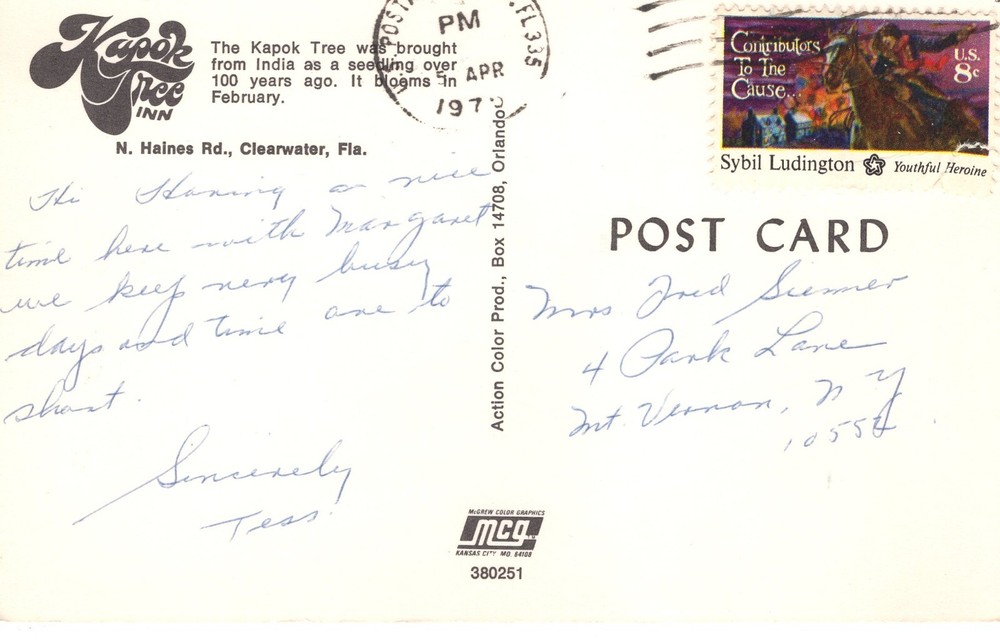 Kapok
Tree
INN
The Kapok Tree was brought
from India as a seedling over
100 years ago. It blooms in
February.
N. Haines Rd., Clearwater, Fla.
Hi Having a nice
time here with Margaret
we keep very busy
days and time are to
short.
Sincerely
Tess
Action Color Prod., Box 14708, Orlando
McGREW COLOR GRAPHICS
mcg
KANSAS CITY MO. 64108
380251
FL 335
PM
5 APR
197
Contributors
To The
Cause...
U.S.
8c
Sybil Ludington Youthful Heroine
POST CARD
Mrs Fred
4 Park Lane
Mt. Vernon, N Y